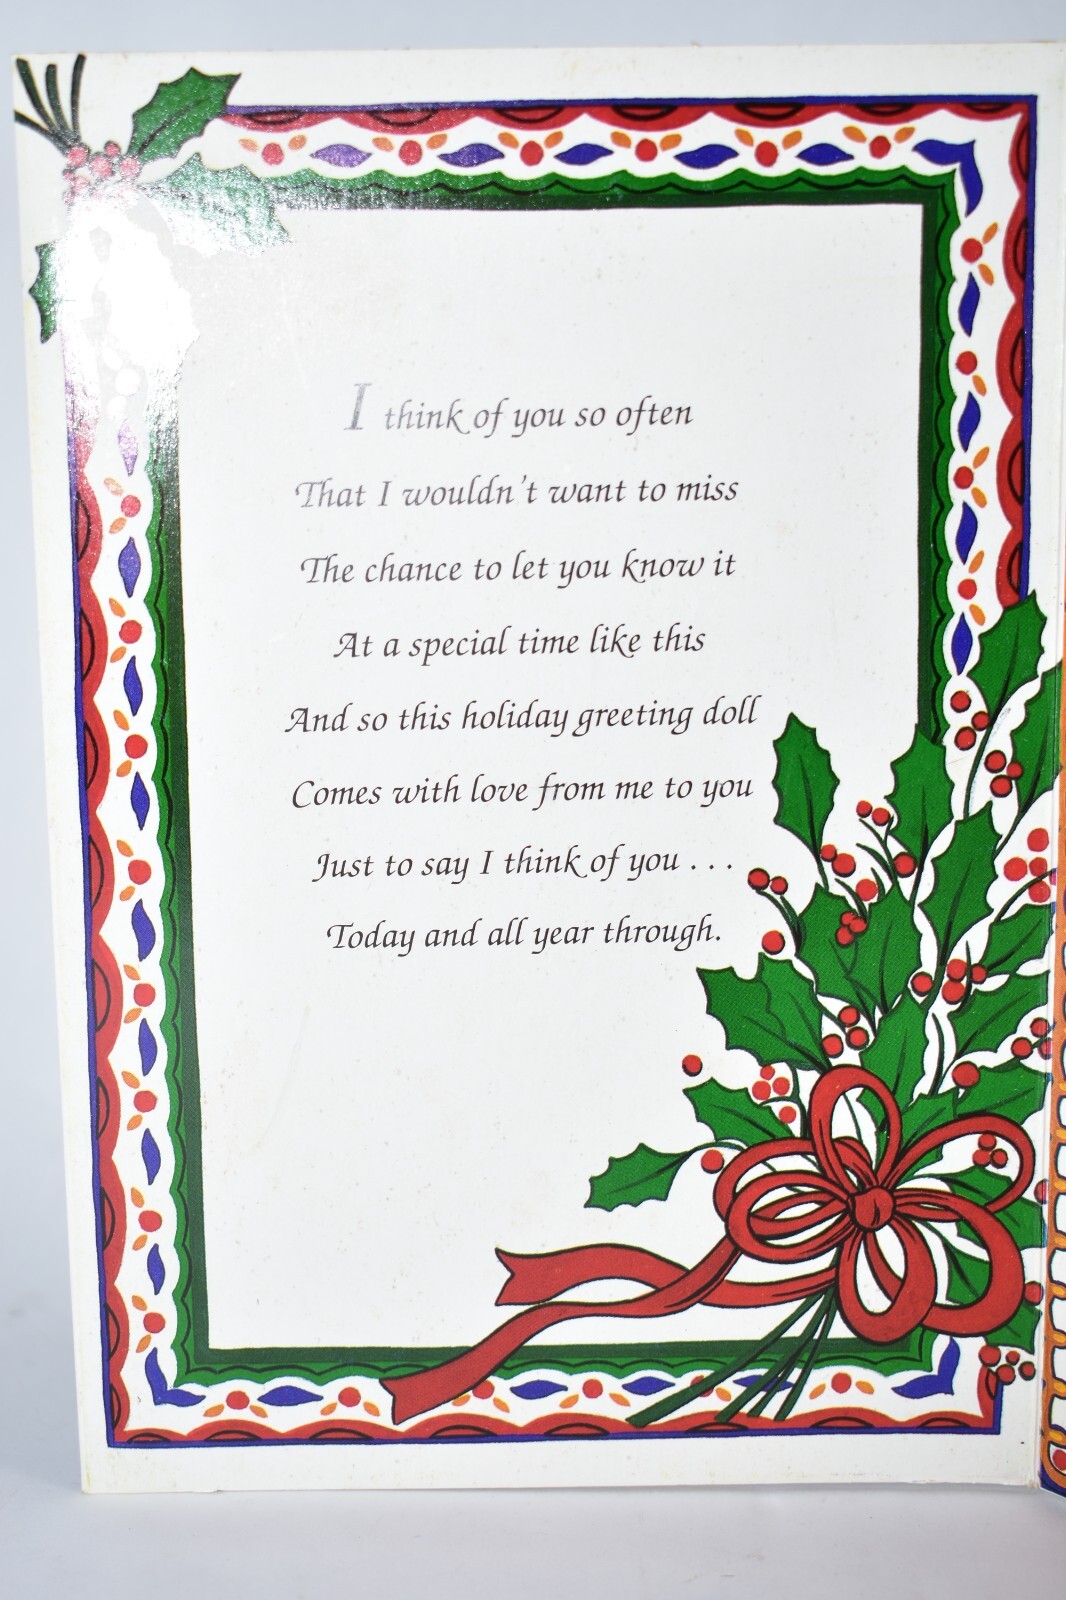 I think of you so often
That I wouldn't want to miss
The chance to let you know it
At a special time like this
And so this holiday greeting doll
Comes with love from me to you
Just to say I think of you . . .
Today and all year through.